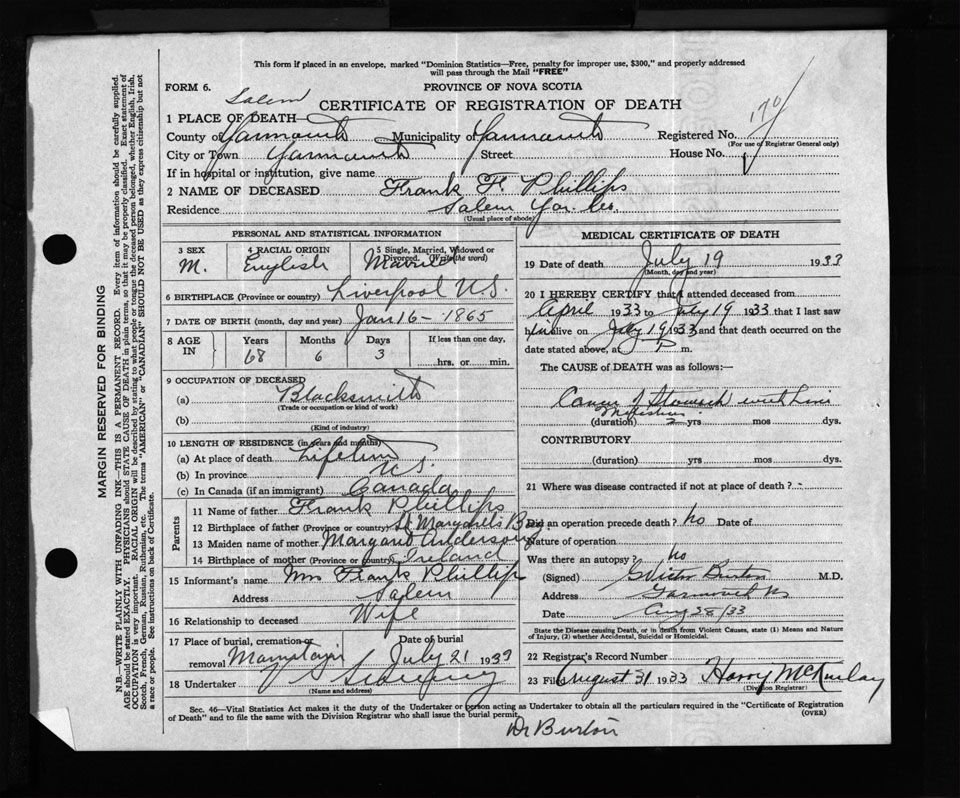 This form if placed in an envelope, marked "Dominion Statistics—Free, penalty for improper use, $300," and properly addressed
will pass through the Mail "FREE"
FORM 6.
PROVINCE OF NOVA SCOTIA
Salem
CERTIFICATE OF REGISTRATION OF DEATH
170
1 PLACE OF DEATH
County of Yarmouth Municipality of Yarmouth Registered No.
(For use of Registrar General only)
City or Town Yarmouth Street House No.
If in hospital or institution, give name
2 NAME OF DECEASED Frank F. Phillips
Residence Salem Yar. Co.
(Usual place of abode)
PERSONAL AND STATISTICAL INFORMATION
3 SEX 4 RACIAL ORIGIN 5 Single, Married, Widowed or Divorced (Write the word)
M. English Married
6 BIRTHPLACE (Province or country) Liverpool N.S.
7 DATE OF BIRTH (month, day and year) Jan 16 - 1865
8 AGE IN Years Months Days If less than one day,
68 6 3 hrs. or min.
9 OCCUPATION OF DECEASED
(a) Blacksmith
(Trade or occupation or kind of work)
(b)
(Kind of industry)
10 LENGTH OF RESIDENCE (in years and months)
(a) At place of death Lifetime
(b) In province N.S.
(c) In Canada (if an immigrant) Canada
Parents
11 Name of father Frank Phillips
12 Birthplace of father (Province or country) St Margarets Bay
13 Maiden name of mother Margaret Anderson
14 Birthplace of mother (Province or country) Ireland
15 Informant's name Mrs Frank Phillips
Address Salem
16 Relationship to deceased Wife
17 Place of burial, cremation or removal Date of burial July 21 1939
18 Undertaker V S Sweeny
(Name and address)
MEDICAL CERTIFICATE OF DEATH
19 Date of death July 19 1933
(Month, day and year)
20 I HEREBY CERTIFY that I attended deceased from
April 1933 to July 19 1933 that I last saw
him alive on July 19 1933 and that death occurred on the
date stated above, at P m.
The CAUSE of DEATH was as follows:—
Cancer of Stomach with Liver
(duration) 2 yrs mos dys.
CONTRIBUTORY
(duration) yrs mos dys.
21 Where was disease contracted if not at place of death?
Did an operation precede death? no Date of
Nature of operation
Was there an autopsy? no
(Signed) G Victor Burton M.D.
Address Yarmouth NS
Date Aug 28/33
State the Disease causing Death, or in death from Violent Causes, state (1) Means and Nature
of Injury, (2) whether Accidental, Suicidal or Homicidal.
22 Registrar's Record Number
23 Filed August 31 1933 Harry McKinlay
(Division Registrar)
Sec. 46—Vital Statistics Act makes it the duty of the Undertaker or person acting as Undertaker to obtain all the particulars required in the "Certificate of Registration
of Death" and to file the same with the Division Registrar who shall issue the burial permit.
(OVER)
Dr Burton
MARGIN RESERVED FOR BINDING
N.B.—WRITE PLAINLY WITH UNFADING INK—THIS IS A PERMANENT RECORD. Every item of information should be carefully supplied.
AGE should be stated EXACTLY. PHYSICIANS should STATE CAUSE OF DEATH in plain terms, so that it may be properly classified. Exact statement of
OCCUPATION is very important. RACIAL ORIGIN will be described by stating to what people or tongue the deceased person belonged, whether English, Irish,
Scotch, French, German, Russian, Ruthenian, etc. The terms "AMERICAN" or "CANADIAN" SHOULD NOT BE USED as they express citizenship but not
a race or people. See instructions on back of Certificate.